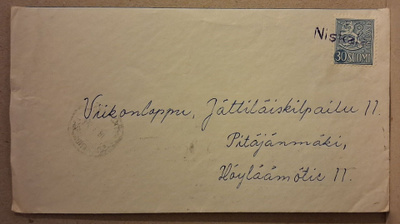 30 SUOMI
Viikonloppu, Jättiläiskilpailu 11.
Pitäjänmäki,
Höyläämötie 11.